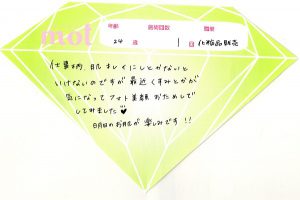 mot
年齢 施術回数 職業
24 歳 1 回 化粧品販売
仕事柄、肌キレイにしとかないと
いけないのですが最近くすみとかが
気になってフォト美顔おためしで
してみました
明日のお肌が楽しみです!!